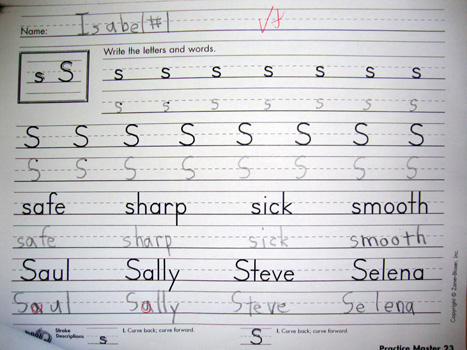 Name: Isabel #1
Write the letters and words.
s S
s s s s s s s
s s s s s s s
S S S S S S S S S
S S S S S S S S S
safe sharp sick smooth
safe sharp sick smooth
Saul Sally Steve Selena
Saul Sally Steve Selena
Stroke Descriptions s 1. Curve back; curve forward. S 1. Curve back; curve forward.
Practice Master 23
Copyright © Zaner-Bloser, Inc.